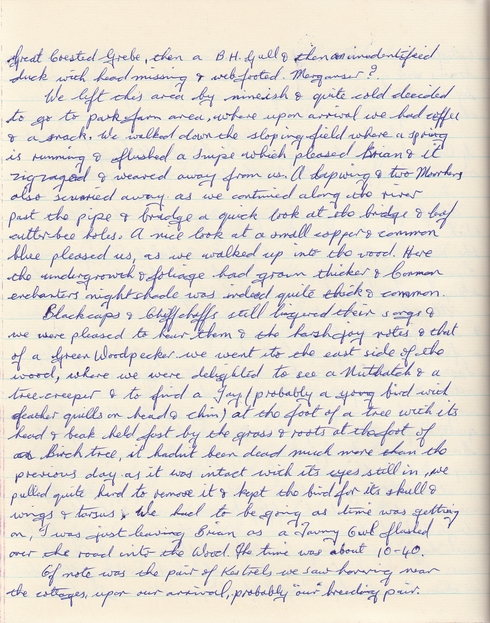 Great Crested Grebe, then a B.H. Gull & then an unidentified
duck with head missing & webfooted. Merganser?
We left this area by nineish & quite cold decided
to go to park farm area, where upon arrival we had coffee
& a snack. We walked down the sloping field where a spring
is running & flushed a Snipe which pleased Brian & it
zigzaged & weaved away from us. A Lapwing & two Moorhens
also scurried away as we continued along the river
past the pipe & bridge a quick look at the bridge & leaf
cutter bee holes. A nice look at a small copper & common
blue pleased us, as we walked up into the wood. Here
the undergrowth & foliage had grown thicker & Common
enchanters nightshade was indeed quite thick & common.
Blackcaps & Chiffchaffs still lingered their songs &
we were pleased to hear them & the harsh jay notes & that
of a Green Woodpecker we went to the east side of the
wood, where we were delighted to see a Nuthatch & a
tree-creeper & to find a Jay (probably a young bird with
feather quills on head & chin) at the foot of a tree with its
head & beak held fast by the grass & roots at the foot of
a Birch tree, it hadnt been dead much more than the
previous day as it was intact with its eyes still in, we
pulled quite hard to remove it & kept the bird for its skull &
wings & tarsus. We had to be going as time was getting
on, I was just leaving Brian as a Tawny Owl flashed
over the road into the Wood. The time was about 10-40.
Of note was the pair of Kestrels we saw near
the cottages, upon our arrival, probably "our" breeding pair.